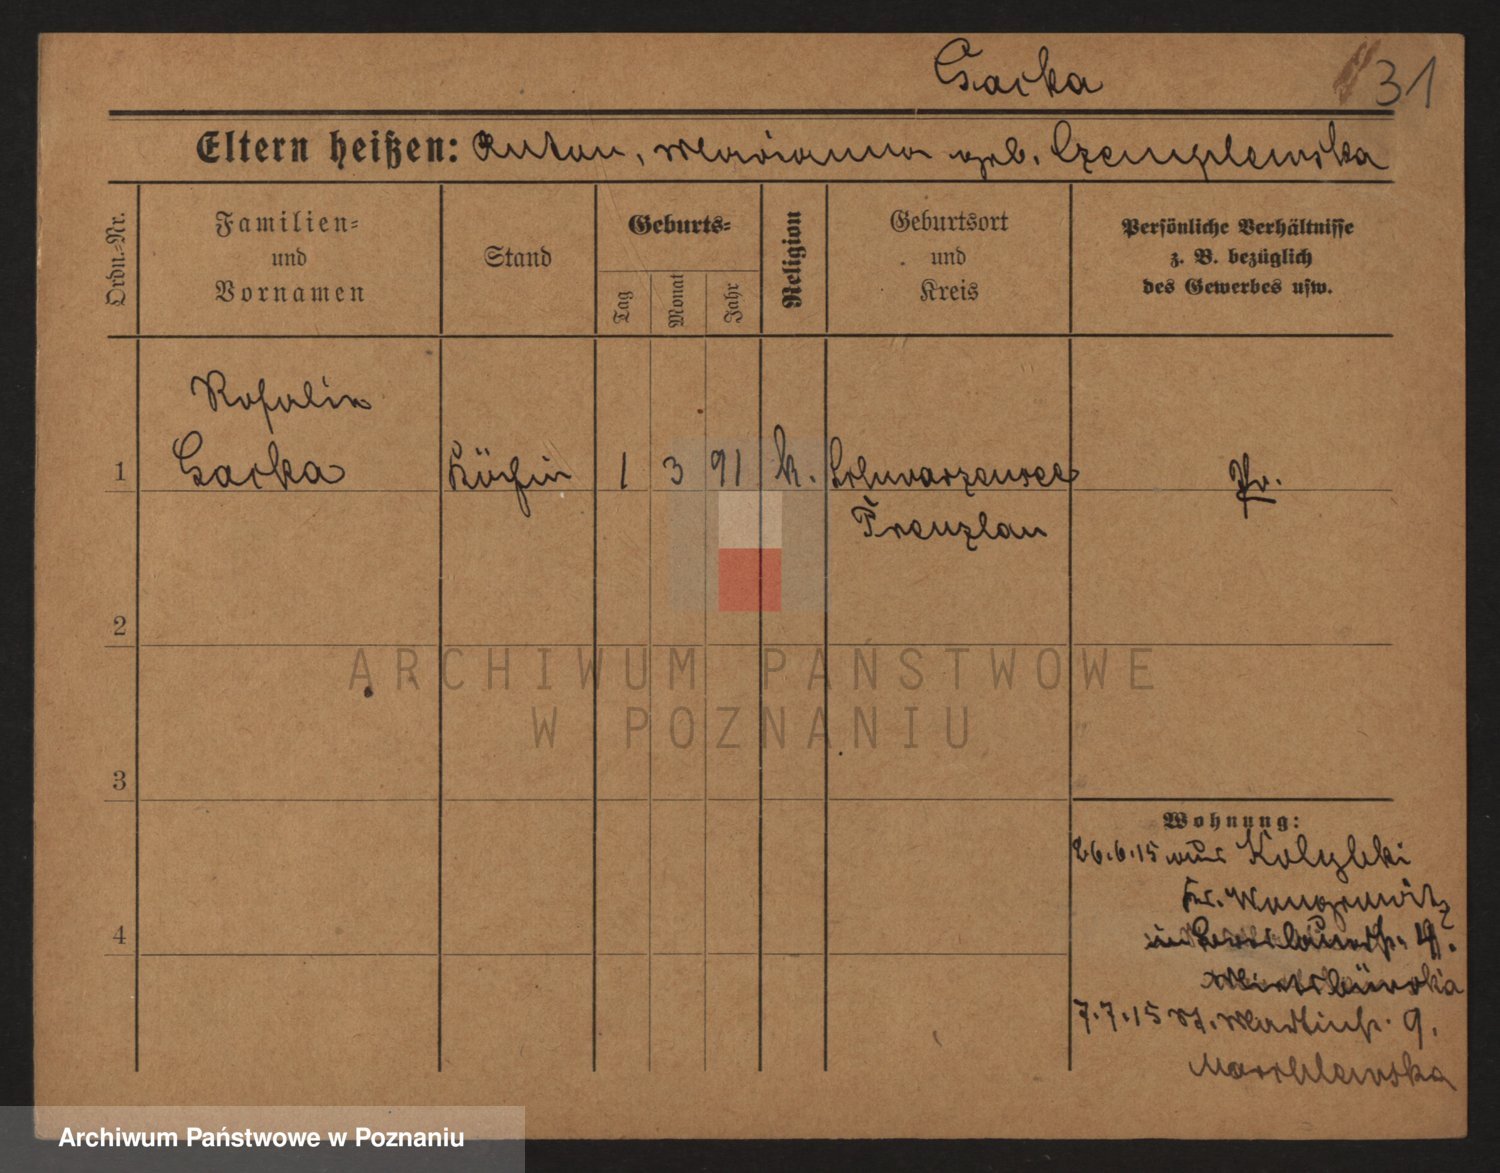 Gacka
31
Eltern heißen: Anton, Marianna geb. Czemplewska
Ordn.-Nr.
Familien-
und
Vornamen
Stand
Geburts-
Tag
Monat
Jahr
Religion
Geburtsort
und
Kreis
Persönliche Verhältnisse
z. B. bezüglich
des Gewerbes usw.
Rosalie
1 Gacka Köchin 1 3 91 k. Schwarzensee Pr.
Prenzlau
2
3
4
Wohnung:
26.6.15 aus Kolybki
Kr. Wongrowitz
4.
7.7.15 St. Martinstr. 9.
ARCHIWUM PAŃSTWOWE
W POZNANIU
Archiwum Państwowe w Poznaniu